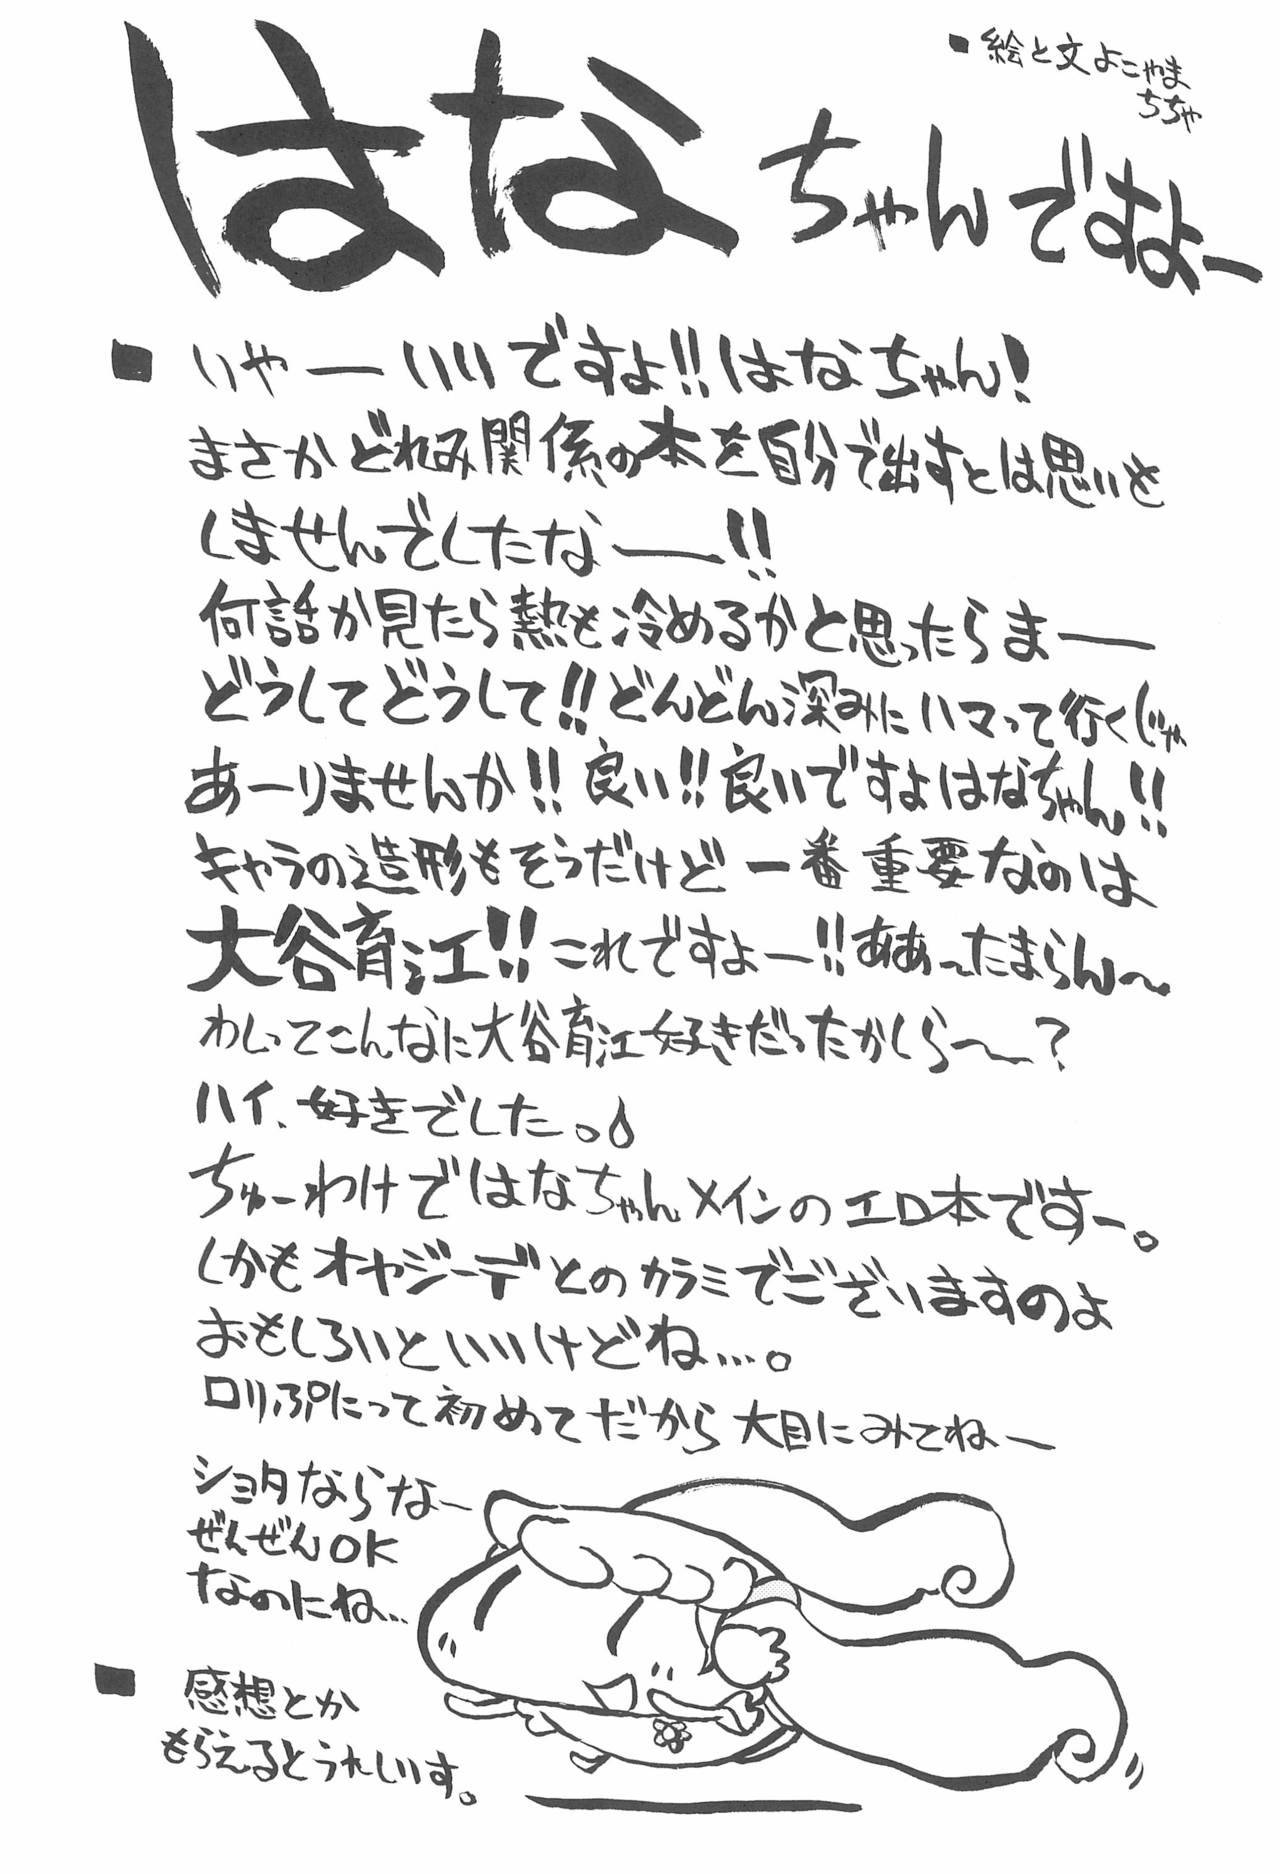 ■絵と文 よこやま
ちちゃ
はなちゃんですよー
■ いやーいいですよ!!はなちゃん!
まさかどれみ関係の本を自分で出すとは思いも
しませんでしたなー!!
何話か見たら熱も冷めるかと思ったらまー
どうしてどうして!!どんどん深みにハマって行くじゃ
あーりませんか!!良い!!良いですよはなちゃん!!
キャラの造形もそうだけど一番重要なのは
大谷育江!!これですよー!!ああ〜たまらん〜
わしってこんなに大谷育江好きだったかしら〜?
ハイ、好きでした。
ちゅーわけではなちゃんメインのエロ本ですー。
しかもオヤジーデとのカラミでございますのよ
おもしろいといいけどね…。
ロリぷにって初めてだから大目にみてねー
ショタならなー
ぜんぜんOK
なのにね…
■ 感想とか
もらえるとうれしいす。